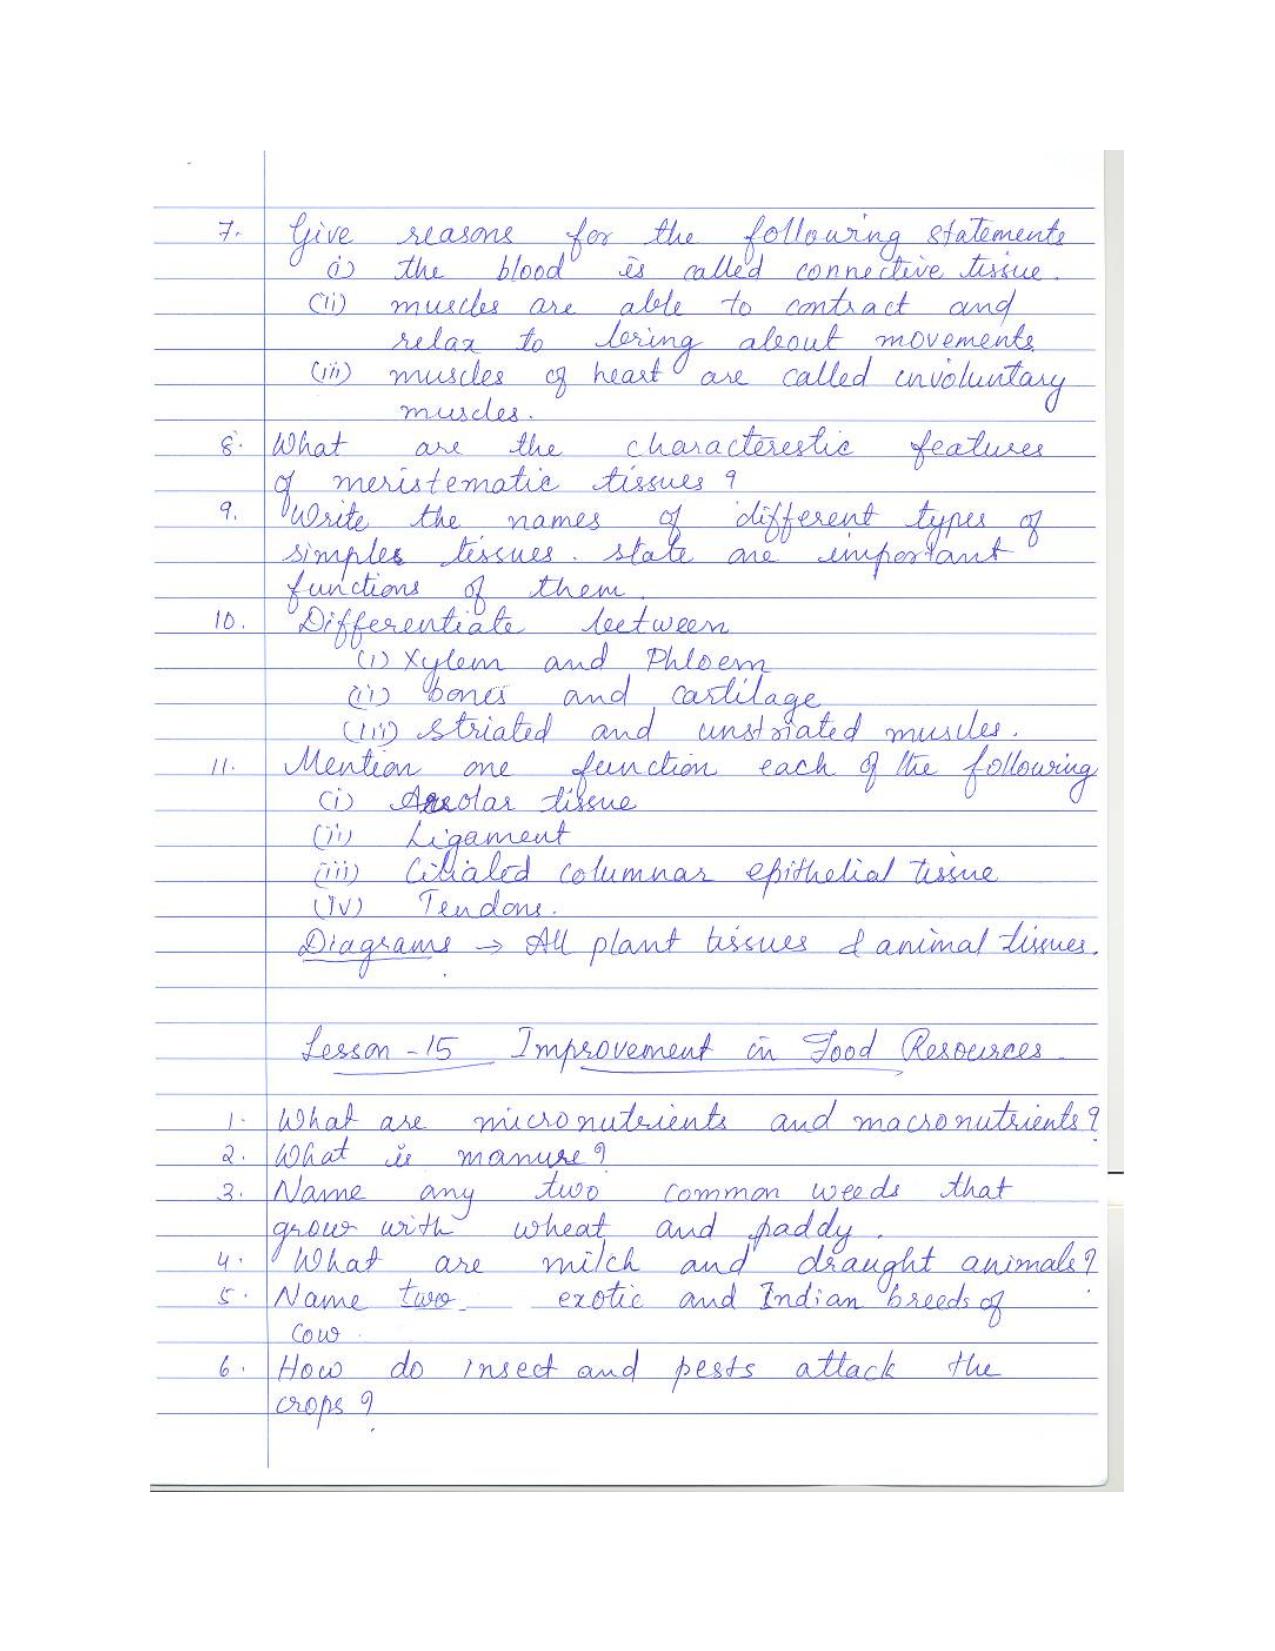 7. Give reasons for the following statements
(i) the blood is called connective tissue.
(ii) muscles are able to contract and
relax to bring about movements
(iii) muscles of heart are called involuntary
muscles.
8. What are the characterestic features
of meristematic tissues ?
9. Write the names of different types of
simples tissues. state one important
functions of them.
10. Differentiate between
(i) Xylem and Phloem
(ii) bones and cartilage
(iii) striated and unstriated muscles.
11. Mention one function each of the following
(i) Areolar tissue
(ii) Ligament
(iii) Ciliated columnar epithelial tissue
(iv) Tendons.
Diagrams → All plant tissues & animal tissues.
Lesson - 15 Improvement in Food Resources
1. What are micronutrients and macronutrients?
2. What is manure?
3. Name any two common weeds that
grow with wheat and paddy.
4. What are milch and draught animals?
5. Name two exotic and Indian breeds of
cow.
6. How do insect and pests attack the
crops ?